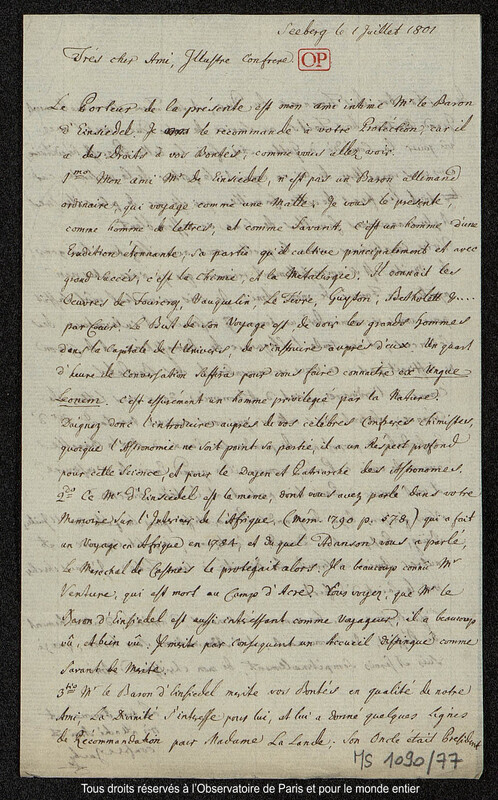 Seeberg le 1 Juillet 1801
Très cher Ami, Illustre Confrere. OP
Le Porteur de la présente est mon ami intime Mr. le Baron
d'Einsiedel. Je le recommande à votre Protection, car il
a des Droits à vos Bontés, comme vous allez voir.
1mo. Mon ami Mr. de Einsiedel, n'est pas un Baron allemand
ordinaire, qui voyage comme une Malle. Je vous le presente,
comme homme de lettres, et comme Savant, c'est un homme d'une
Erudition étonnante, sa partie qu'il cultive principalement et avec
grand succès, c'est la Chemie, et la Métalurgie. Il connait les
Oeuvres de Fourcroy, Vauquelin, Le Fevre, Guyton, Bertholett &...
par Coeur. Le But de son Voyage est de voir les grands hommes
dans la Capitale de l'Univers, de s'instruire aupres d'eux. Un quart
d'heure de Conversation suffira pour vous faire connaitre ex Ungue
Leonem. c'est assurement un homme privilegié par la Nature.
Daignez donc l'introduire auprès de vos célébres Confreres chimistes,
quoique l'Astronomie ne soit point sa partie, il a un Respect profond
pour cette Science, et pour le Doyen et Patriarche des Astronomes.
2do Ce Mr. d'Einsiedel est le meme, dont vous avez parlé dans votre
Memoire sur l'Interieur de l'Afrique, (Mem. 1790 p. 578.) qui a fait
un Voyage en Afrique en 1784, et duquel Adanson vous a parlé,
le Marechal de Castries le protégait alors. Il a beaucoup connu Mr
Venture, qui est mort au Camp d'Acre. Vous voyez, que Mr. le
Baron d'Einsiedel est aussi intéressant comme Voyageur, il a beaucoup
vû, et bien vû. Il merite par consequent un Accueil distingué comme
Savant de Merite.
3tio Mr. le Baron d'Einsiedel merite vos Bontés en qualité de notre
Ami. La Divinité s'intresse pour lui, et lui a donné quelques lignes
de Récommendation pour Madame La Lande; son Oncle était President
MS 1090/77
Tous droits réservés à l'Observatoire de Paris et pour le monde entier